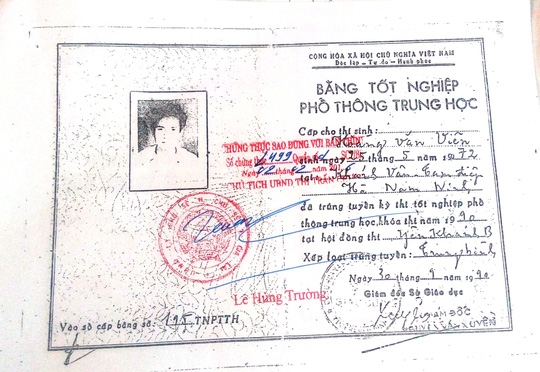 CỘNG HÒA XÃ HỘI CHỦ NGHĨA VIỆT NAM
Độc lập - Tự do - Hạnh phúc
BẰNG TỐT NGHIỆP
PHỔ THÔNG TRUNG HỌC
Cấp cho thí sinh:
Hoàng Văn Viên
sinh ngày 25 tháng 5 năm 1972
Khánh Vân Tam Điệp
Hà Nam Ninh
đã trúng tuyển kỳ thi tốt nghiệp phổ
thông trung học, khóa thi năm 1990
tại hội đồng thi Yên Khánh B
Xếp loại trúng tuyển: Trung bình
Ngày 30 tháng 9 năm 1990
Giám đốc Sở Giáo dục
CHỨNG THỰC SAO ĐÚNG VỚI BẢN CHÍNH
Số chứng thực 1499
Ngày 02
CHỦ TỊCH UBND THỊ TRẤN
Lê Hùng Trường
Vào sổ cấp bằng số: 195 TNPTTH